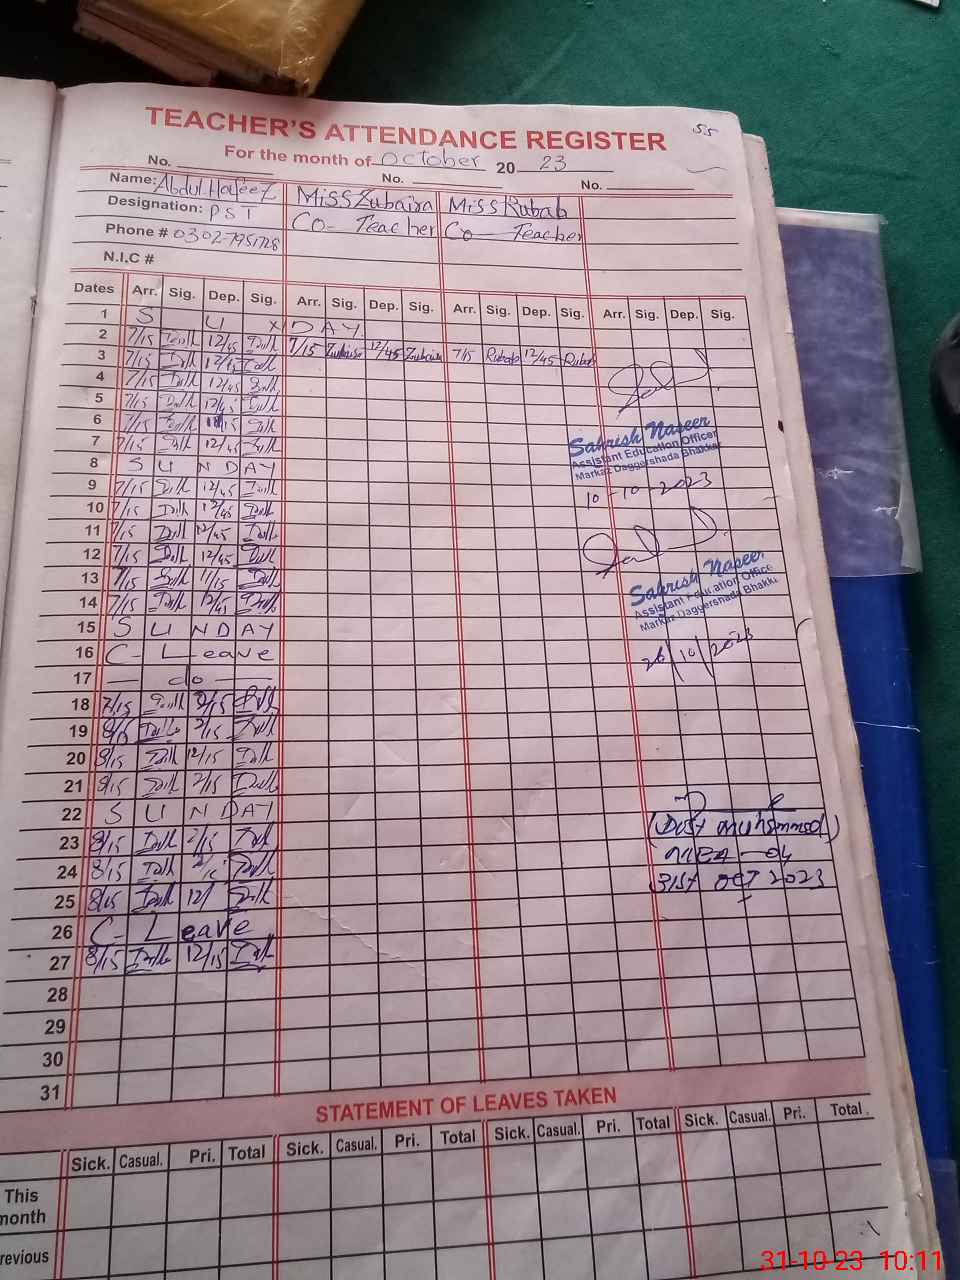 55
TEACHER'S ATTENDANCE REGISTER
For the month of October 20 23
No. No. No.
Name: Abdul Hafeez Miss Zubaira Miss Rubab
Designation: PST Co- Teacher Co- Teacher
Phone # 03027951728
N.I.C #
Dates Arr. Sig. Dep. Sig. Arr. Sig. Dep. Sig. Arr. Sig. Dep. Sig. Arr. Sig. Dep. Sig.
1 S U N DAY
2 7/15 12/45 7/15 Zubaira 12/45 Zubaira 7/15 Rubab 12/45 Rubab
3 7/15 12/45
4 7/15 12/45
5 7/15 12/45
6 7/15 11/15
7 7/15 12/45
8 S U N DAY
9 7/15 12/45
10 7/15 12/45
11 7/15 12/45
12 7/15 12/45
13 7/15 11/15
14 7/15 12/45
15 S U N DAY
16 C- Leave
17 — do —
18 7/15 2/15
19 8/15 2/15
20 8/15 12/15
21 8/15 2/15
22 S U N DAY
23 8/15 2/15
24 8/15
25 8/15 12/
26 C- Leave
27 8/15 12/15
28
29
30
31
Sahrish Naseer
Assistant Education Officer
Markaz Daggershada Bhakkar
10-10-2023
Sahrish Naseer
Assistant Education Office
Markaz Daggershada Bhakka
26/10/2023
(Dost Muhammad)
MEA-04
31st OCT 2023
STATEMENT OF LEAVES TAKEN
Sick. Casual. Pri. Total Sick. Casual. Pri. Total Sick. Casual. Pri. Total Sick. Casual. Pri. Total
This
month
revious
31-10-23 10:11